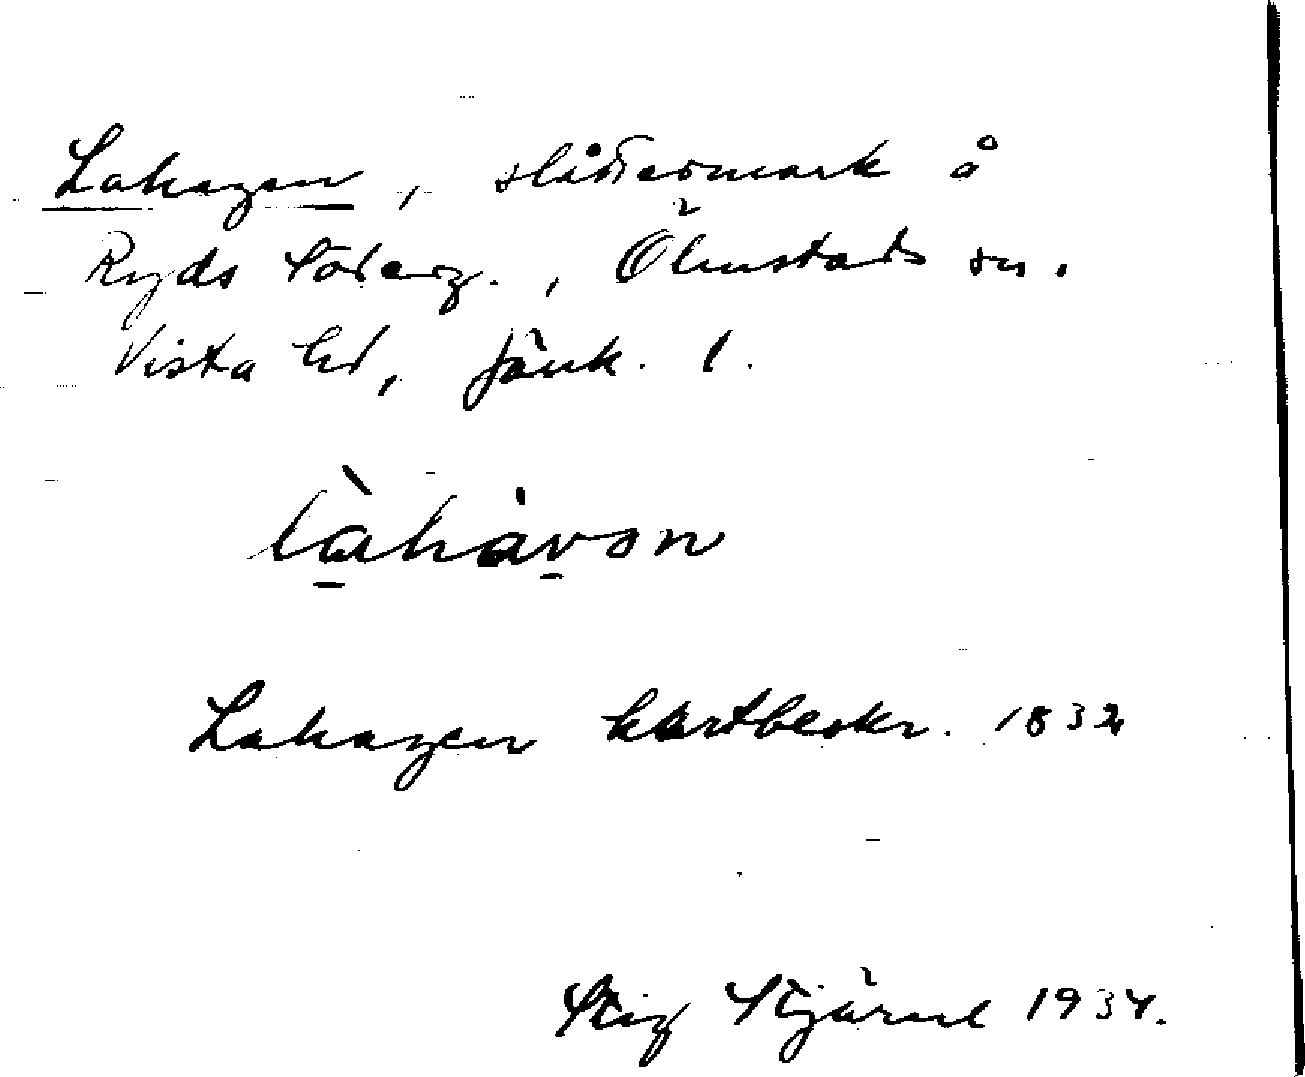 Lahagen, slåttermark å
Ryds Söderg., Ölmstads sn.
Vista hd, Jönk. l.
làhàvɔn
Lahagen kartbeskr. 1832
Stig Stjärne 1934.